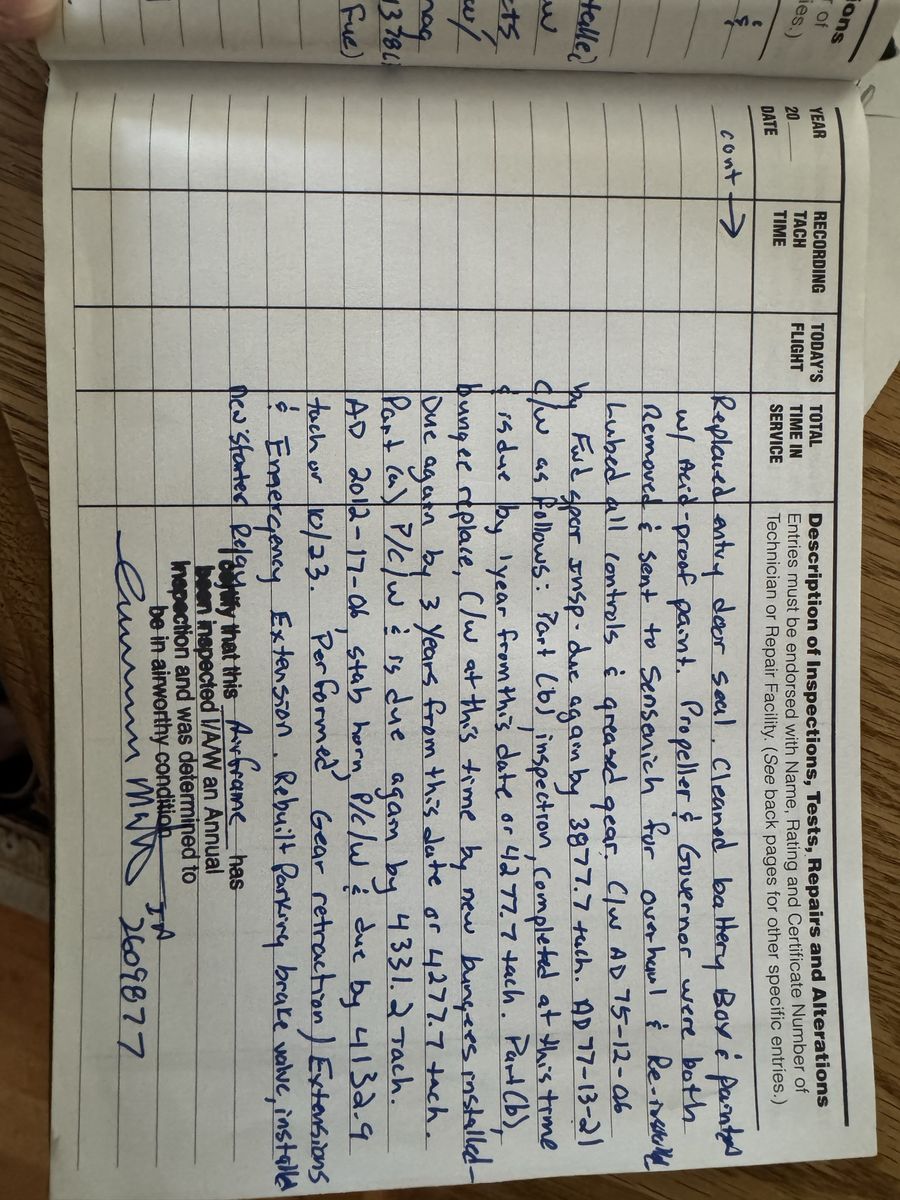 ions
r of
ies.)
&
&
talled
w
cts,
w/
mag
1378
Fuel
YEAR
20
DATE
RECORDING
TACH
TIME
TODAY'S
FLIGHT
TOTAL
TIME IN
SERVICE
Description of Inspections, Tests, Repairs and Alterations
Entries must be endorsed with Name, Rating and Certificate Number of
Technician or Repair Facility. (See back pages for other specific entries.)
cont →
Replaced entry door seal. Cleaned battery Box & painted
w/ Acid-proof paint. Propeller & Governor were both
Removed & sent to Sensenich for overhaul & Re-installed
Lubed all controls & greased gear. C/W AD 75-12-06
by Fwd spar insp - due again by 3877.7 tach. AD 77-13-21
C/W as follows: Part (b), inspection, completed at this time
& is due by 1 year from this date or 4277.7 tach. Part (b),
bungee replace, C/W at this time by new bungees installed-
Due again by 3 years from this date or 4277.7 tach.
Part (a) P/C/W & is due again by 4331.2 Tach.
AD 2012-17-06, stab horn, P/C/W & due by 4132.9
tach or 10/23. Performed Gear retraction / Extensions
& Emergency Extension. Rebuilt Parking brake valve, installed
new starter Relay.
certify that this Airframe has
been inspected I/A/W an Annual
inspection and was determined to
be in airworthy condition
IA
2609877